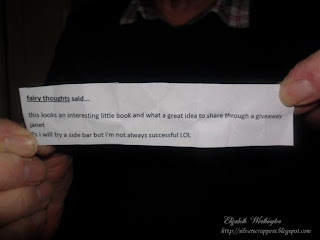 fairy thoughts said...
this looks an interesting little book and what a great idea to share through a giveaway
janet
Ps i will try a side bar but i'm not always successful LOL
Elizabeth Worthington
http://silverscrappers.blogspot.com